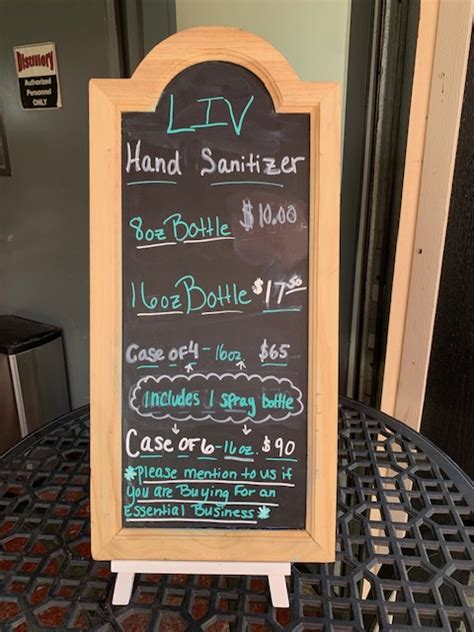 Distillery
Authorized
Personnel
ONLY
LIV
Hand Sanitizer
8oz Bottle $10.00
16oz Bottle $17.50
Case of 4 - 16oz. $65
includes 1 spray bottle
Case of 6 - 16oz. $90
*please mention to us if
you are Buying For an
Essential Business*